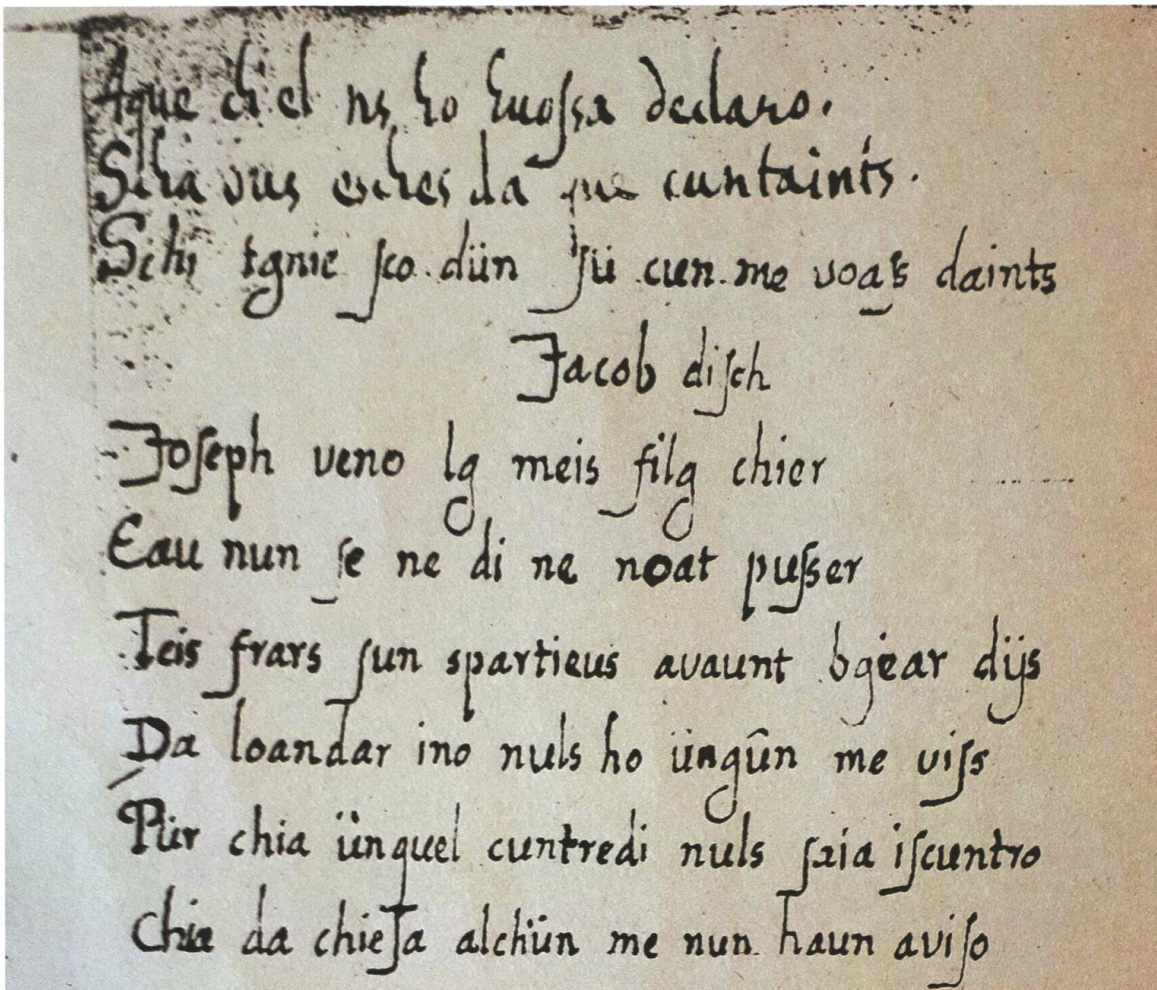 Aque chi el ns ho huossa declaro.
Scha vus esches da que cuntaints.
Schi tgnie sco dün sü cun me voass daints
Jacob disch
Joseph veno lg meis filg chier
Eau nun se ne di ne noat pusser
Teis frars sun spartieus avaunt bgiear dijs
Da loandar ino nuls ho üngûn me viss
Pür chia ünquel cuntredi nuls saia iscuntro
Chia da chiesa alchün me nun haun aviso